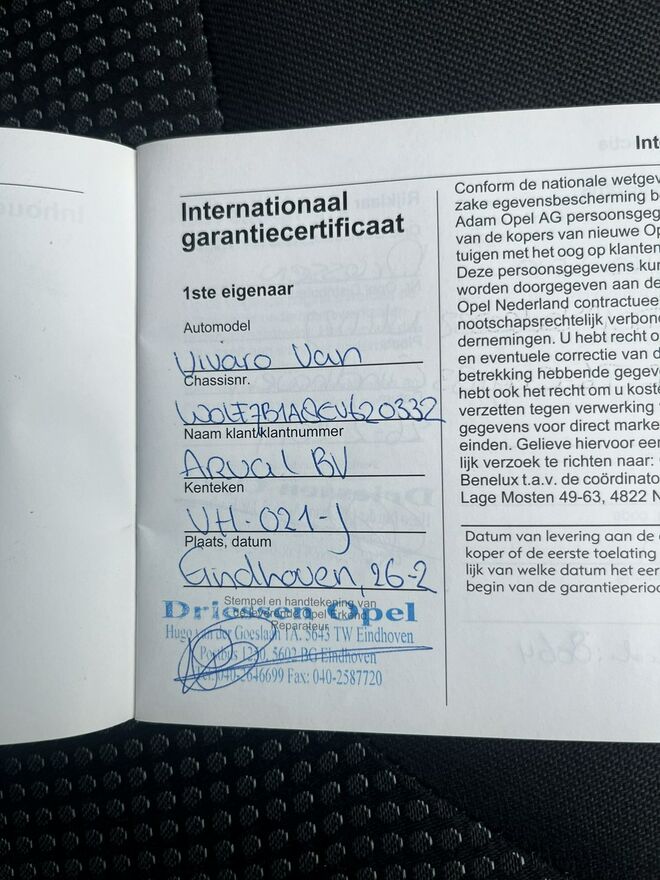 Internationaal
garantiecertificaat
1ste eigenaar
Automodel
Vivaro Van
Chassisnr.
W0LF7B1A8EV620332
Naam klant/klantnummer
Arval BV
Kenteken
VH-021-J
Plaats, datum
Eindhoven, 26-2
Stempel en handtekening van
de leverende Opel Erkend
Reparateur
Driessen Opel
Hugo van der Goeslaan 1A, 5643 TW Eindhoven
Postbus 1230, 5602 BG Eindhoven
Tel: 040-2646699 Fax: 040-2587720
Int
Conform de nationale wetgev
zake egevensbescherming b
Adam Opel AG persoonsgeg
van de kopers van nieuwe Op
tuigen met het oog op klanten
Deze persoonsgegevens kun
worden doorgegeven aan de
Opel Nederland contractuee
nootschapsrechtelijk verbon
dernemingen. U hebt recht o
en eventuele correctie van d
betrekking hebbende gegev
hebt ook het recht om u koste
verzetten tegen verwerking
gegevens voor direct marke
einden. Gelieve hiervoor een
lijk verzoek te richten naar:
Benelux t.a.v. de coördinato
Lage Mosten 49-63, 4822 N
Datum van levering aan de
koper of de eerste toelating
lijk van welke datum het eer
begin van de garantieperio